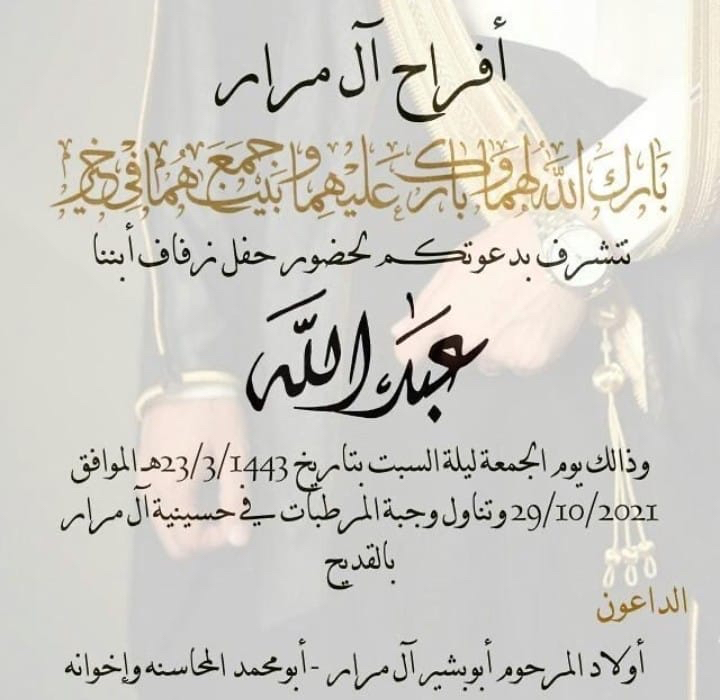 أفراح آل مرار
بَارَكَ اللهُ لهما وبَارَكَ عَليْهِما وجَمَعَ بَيْنَهُمَا فِي خَيْرٍ
نتشرف بدعوتكم لحضور حفل زفاف أبننا
عبدالله
وذالك يوم الجمعة ليلة السبت بتاريخ 23/3/1443هـ الموافق
29/10/2021 وتناول وجبة المرطبات في حسينية آل مرار
بالقديح
الداعون
أولاد المرحوم أبو بشير آل مرار - أبو محمد المحاسنه وإخوانه